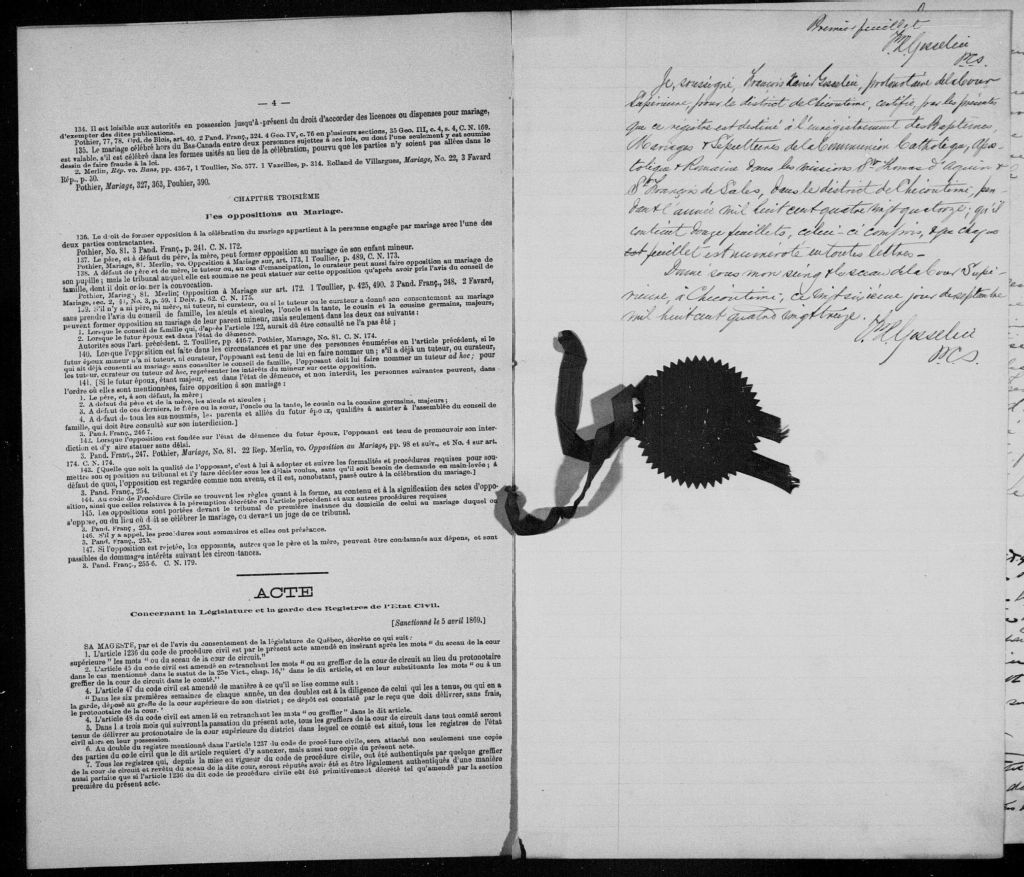 — 4 —
134. Il est loisible aux autorités en possession jusqu'à présent du droit d'accorder des licences ou dispenses pour mariage,
d'exempter des dites publications.
Pothier, 77, 78. Ord. de Blois, art. 40, 2 Pand. Franç., 324. 4 Geo. IV, c. 76 en plusieurs sections, 35 Geo. III, c. 4, s. 4, C. N. 169.
135. Le mariage célébré hors du Bas-Canada entre deux personnes sujettes à ses lois, ou dont l'une seulement y est soumise
est valable, s'il est célébré dans les formes usités au lieu de la célébration, pourvu que les parties n'y soient pas allées dans le
dessin de faire fraude à la loi.
2. Merlin, Rép. vo. Bans, pp. 436-7, 1 Toullier, No. 577. 1 Vazeilles, p. 314. Rolland de Villargues, Mariage, No. 22, 3 Favard
Rép., p. 50.
Pothier, Mariage, 327, 363, Pouhier, 390.
CHAPITRE TROISIÈME
Des oppositions au Mariage.
136. Le droit de former opposition à la célébration du mariage appartient à la personne engagée par mariage avec l'une des
deux parties contractantes.
Pothier, No. 81. 3 Pand. Franç., p. 241. C. N. 172.
137. Le père, et à défaut du père, la mère, peut former opposition au mariage de son enfant mineur.
Pothier, Mariage, 81. Merlin, vo. Opposition à Mariage, sur art. 173, 1 Toullier, p. 489, C. N. 173.
138. A défaut de père et de mère, le tuteur, ou, au cas d'émancipation, le curateur peut aussi faire opposition au mariage de
son pupille; mais le tribunal auquel elle est soumise ne peut statuer sur cette opposition qu'après avoir pris l'avis du conseil de
famille, dont il doit ordonner la convocation.
Pothier, Mariage, 81. Merlin; Opposition à Mariage sur art. 172. 1 Toullier, p. 425, 490. 3 Pand. Franç., 248. 2 Favard,
Mariage, sec. 2, §1, No. 3, p. 59. 1 Delv. p. 62. C. N. 175.
139. S'il n'y a ni père, ni mère, ni tuteur, ni curateur, ou si le tuteur ou le curateur a donné son consentement au mariage
sans prendre l'avis du conseil de famille, les aïeuls et aïeules, l'oncle et la tante, le cousin et la cousine germains, majeurs,
peuvent former opposition au mariage de leur parent mineur, mais seulement dans les deux cas suivants:
1. Lorsque le conseil de famille qui, d'après l'article 122, aurait dû être consulté ne l'a pas été;
2. Lorsque le futur époux est dans l'état de démence.
Autorités sous l'art. précédent. 2. Toullier, pp. 446-7. Pothier, Mariage, No. 81. C. N. 174.
140. Lorsque l'opposition est faite dans les circonstances et par une des personnes énumérées en l'article précédent, si le
futur époux mineur n'a ni tuteur, ni curateur, l'opposant est tenu de lui en faire nommer un; s'il a déjà un tuteur, ou curateur,
qui ait déjà consenti au mariage sans consulter le conseil de famille, l'opposant doit lui faire nommer un tuteur ad hoc; pour
les tuteur, curateur ou tuteur ad hoc, représenter les intérêts du mineur sur cette opposition.
141. [Si le futur époux, étant majeur, est dans l'état de démence, et non interdit, les personnes suivantes peuvent, dans
l'ordre où elles sont mentionnées, faire opposition à son mariage:
1. Le père, et, à son défaut, la mère;
2. A défaut du père et de la mère, les aïeuls et aïeules;
3. A défaut de ces derniers, le frère ou la sœur, l'oncle ou la tante, le cousin ou la cousine germains, majeurs;
4. A défaut de tous les sus-nommés, les parents et alliés du futur époux, qualifiés à assister à l'assemblée du conseil de
famille, qui doit être consulté sur son interdiction.]
3. Pand. Franç., 246 7.
142. Lorsque l'opposition est fondée sur l'état de démence du futur époux, l'opposant est tenu de promouvoir son inter-
diction et d'y faire statuer sans délai.
3. Pand. Franç., 247. Pothier, Mariage, No. 81. 22 Rep. Merlin, vo. Opposition au Mariage, pp. 98 et suiv., et No. 4 sur art.
174. C. N. 174.
143. [Quelque que soit la qualité de l'opposant, c'est à lui à adopter et suivre les formalités et procédures requises pour sou-
mettre son opposition au tribunal et l'y faire décider sous les délais voulus, sans qu'il soit besoin de demande en main-levée; à
défaut de quoi, l'opposition est regardée comme non avenu, et il est, nonobstant, passé outre à la célébration du mariage.]
3. Pand. Franç., 254.
144. Au code de Procédure Civile se trouvent les règles quant à la forme, au contenu et à la signification des actes d'oppo-
sition, ainsi que celles relatives à la péremption décrétée en l'article précédent et aux autres procédures requises
145. Les oppositions sont portées devant le tribunal de première instance du domicile de celui au mariage duquel on
s'oppose, ou du lieu où doit se célébrer le mariage, ou devant un juge de ce tribunal.
3. Pand. Franç., 253.
146. S'il y a appel, les procédures sont sommaires et elles ont préséance.
3. Pand. Franç., 253.
147. Si l'opposition est rejetée, les opposants, autres que le père et la mère, peuvent être condamnés aux dépens, et sont
passibles de dommages intérêts suivant les circonstances.
3. Pand. Franç., 255-6. C. N. 179.
ACTE
Concernant la Législature et la garde des Registres de l'Etat Civil.
[Sanctionné le 5 avril 1869.]
SA MAGESTE, par et de l'avis du consentement de la législature de Québec, décrète ce qui suit:
1. L'article 1236 du code de procédure civil est par le présent acte amendé en insérant après les mots "du sceau de la cour
supérieure" les mots "ou du sceau de la cour de circuit."
2. L'article 45 du code civil est amendé en retranchant les mots "ou au greffier de la cour de circuit au lieu du protonotaire
dans le cas mentionné dans le statut de la 25e Vict., chap. 16," dans le dit article, et en leur substituants les mots "ou à un
greffier de la cour de circuit dans le comté."
4. L'article 47 du code civil est amendé de manière à ce qu'il se lise comme suit:
"Dans les six premières semaines de chaque année, un des doubles est à la diligence de celui qui les a tenus, ou qui en a
la garde, déposé au greffe de la cour supérieure de son district; ce dépôt est constaté par le reçu que doit délivrer, sans frais,
le protonotaire de la cour."
4. L'article 48 du code civil est amendé en retranchant les mots "ou greffier" dans le dit article.
5. Dans les trois mois qui suivront la passation du présent acte, tous les greffiers de la cour de circuit dans tout comté seront
tenus de délivrer au protonotaire de la cour supérieure du district dans lequel ce comté est situé, tous les registres de l'état
civil alors en leur possession.
6. Au double du registre mentionné dans l'article 1237 du code de procédure civile, sera attaché non seulement une copie
des parties du code civil que le dit article requiert d'y annexer, mais aussi une copie du présent acte.
7. Tous les registres qui, depuis la mise en vigueur du code de procédure civile, ont été authentiqués par quelque greffier
de la cour de circuit et revêtu du sceau de la dite cour, seront réputés avoir été et être légalement authentiqués d'une manière
aussi parfaite que si l'article 1236 du dit code de procédure civile eût été primitivement décrété tel qu'amendé par la section
première du présent acte.
Premier feuillet
F. X. Gosselin
P.C.S.
Je, soussigné, François Xavier Gosselin, protonotaire de la Cour
Supérieure, pour le district de Chicoutimi, certifie, par les présentes
que ce registre est destiné à l'enregistrement des Baptêmes
Mariages & Sépultures de la Communion Catholique, Apos-
tolique & Romaine dans les missions St Thomas d'Aquin &
St François de Sales, dans le district de Chicoutimi, pen-
dant l'année mil huit cent quatre vingt quatorze; qu'il
contient douze feuillets, celui-ci compris, & que chaque
feuillet est numéroté en toutes lettres-
Donné sous mon seing & le sceau de la Cour Supé-
rieure, à Chicoutimi, ce vingt sixième jour de septembre
mil huit cent quatre vingt treize.
F. X. Gosselin
P.C.S.